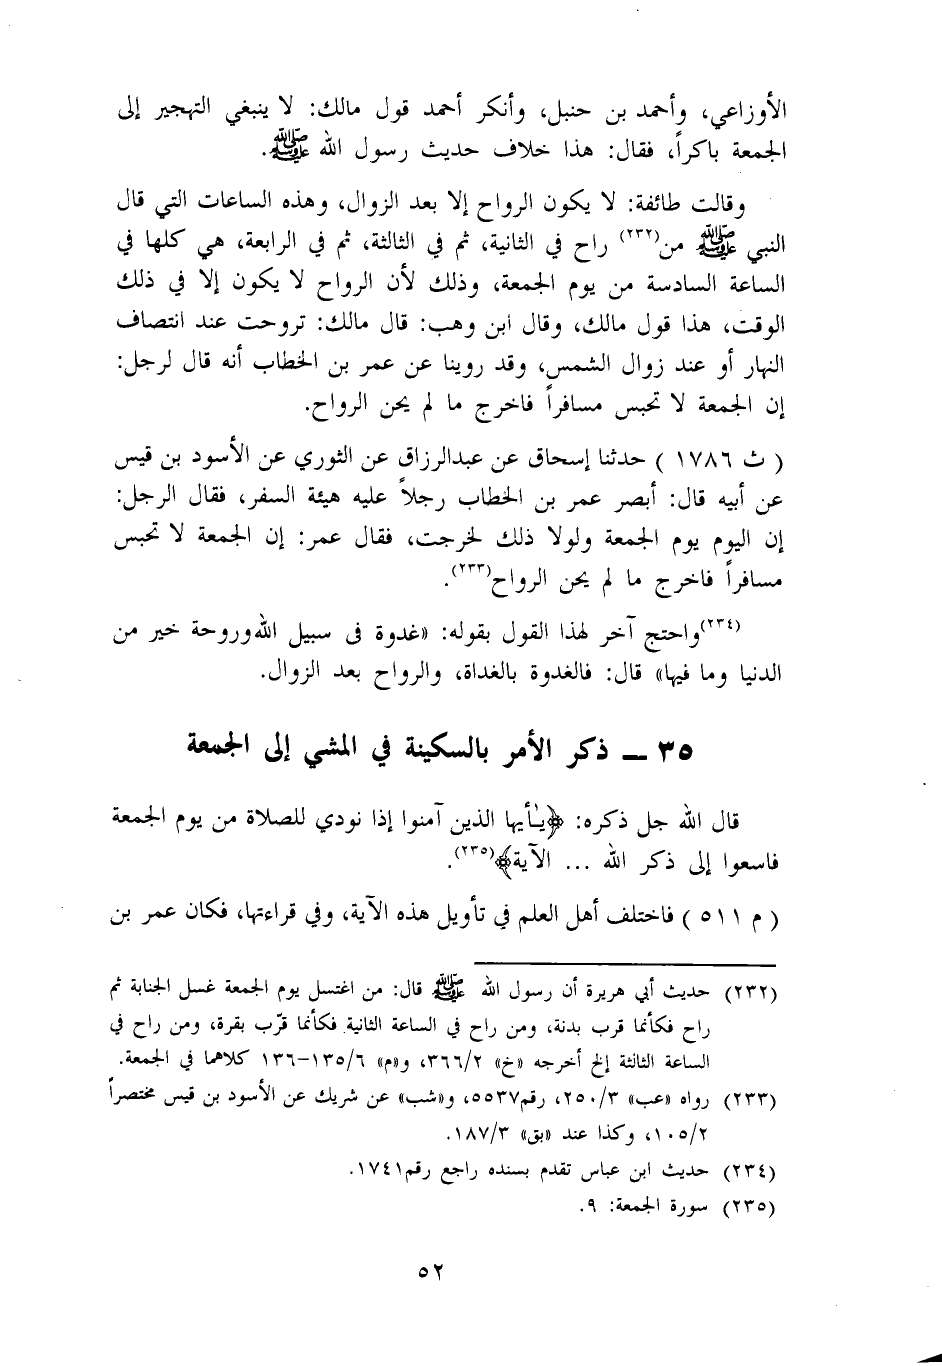 الأوزاعي، وأحمد بن حنبل، وأنكر أحمد قول مالك: لا ينبغي التهجير إلى
الجمعة باكراً، فقال: هذا خلاف حديث رسول الله ﷺ.
وقالت طائفة: لا يكون الرواح إلا بعد الزوال، وهذه الساعات التي قال
النبي ﷺ من(٢٣٢) راح في الثانية، ثم في الثالثة، ثم في الرابعة، هي كلها في
الساعة السادسة من يوم الجمعة، وذلك لأن الرواح لا يكون إلا في ذلك
الوقت، هذا قول مالك، وقال ابن وهب: قال مالك: تروحت عند انتصاف
النهار أو عند زوال الشمس، وقد روينا عن عمر بن الخطاب أنه قال لرجل:
إن الجمعة لا تحبس مسافراً فاخرج ما لم يحن الرواح.
( ث ١٧٨٦ ) حدثنا إسحاق عن عبدالرزاق عن الثوري عن الأسود بن قيس
عن أبيه قال: أبصر عمر بن الخطاب رجلاً عليه هيئة السفر، فقال الرجل:
إن اليوم يوم الجمعة ولولا ذلك لخرجت، فقال عمر: إن الجمعة لا تحبس
مسافراً فاخرج ما لم يحن الرواح(٢٣٣).
(٢٣٤)واحتج آخر لهذا القول بقوله: «غدوة فى سبيل الله وروحة خير من
الدنيا وما فيها» قال: فالغدوة بالغداة، والرواح بعد الزوال.
٣٥ ــ ذكر الأمر بالسكينة في المشي إلى الجمعة
قال الله جل ذكره: ﴿يـٰأيها الذين آمنوا إذا نودي للصلاة من يوم الجمعة
فاسعوا إلى ذكر الله ... الآية﴾(٢٣٥).
( م ٥١١ ) فاختلف أهل العلم في تأويل هذه الآية، وفي قراءتها، فكان عمر بن
(٢٣٢) حديث أبي هريرة أن رسول الله ﷺ قال: من اغتسل يوم الجمعة غسل الجنابة ثم
راح فكأنما قرب بدنة، ومن راح في الساعة الثانية فكأنما قرّب بقرة، ومن راح في
الساعة الثالثة إلخ أخرجه «خ» ٣٦٦/٢، و«م» ١٣٥/٦–١٣٦ كلاهما في الجمعة.
(٢٣٣) رواه «عب» ٢٥٠/٣، رقم٥٥٣٧، و«شب» عن شريك عن الأسود بن قيس مختصراً
١٠٥/٢، وكذا عند «بق» ١٨٧/٣.
(٢٣٤) حديث ابن عباس تقدم بسنده راجع رقم١٧٤١.
(٢٣٥) سورة الجمعة: ٩.
٥٢